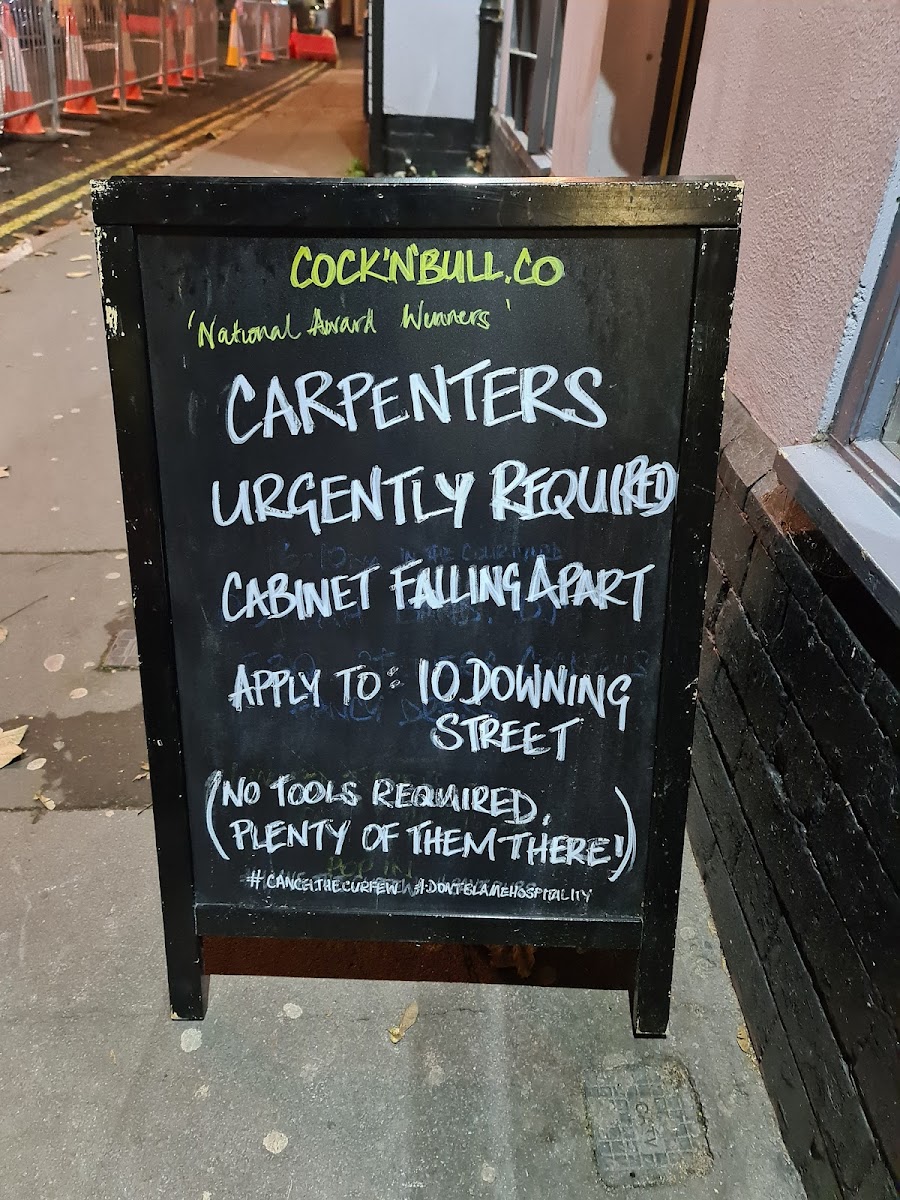 COCK'N'BULL.CO
'National Award Winners'
CARPENTERS
URGENTLY REQUIRED
CABINET FALLING APART
APPLY TO: 10 DOWNING
STREET
(NO TOOLS REQUIRED,
PLENTY OF THEM THERE!)
#CANCELTHECURFEW #DONTBLAMEHOSPITALITY
CATV